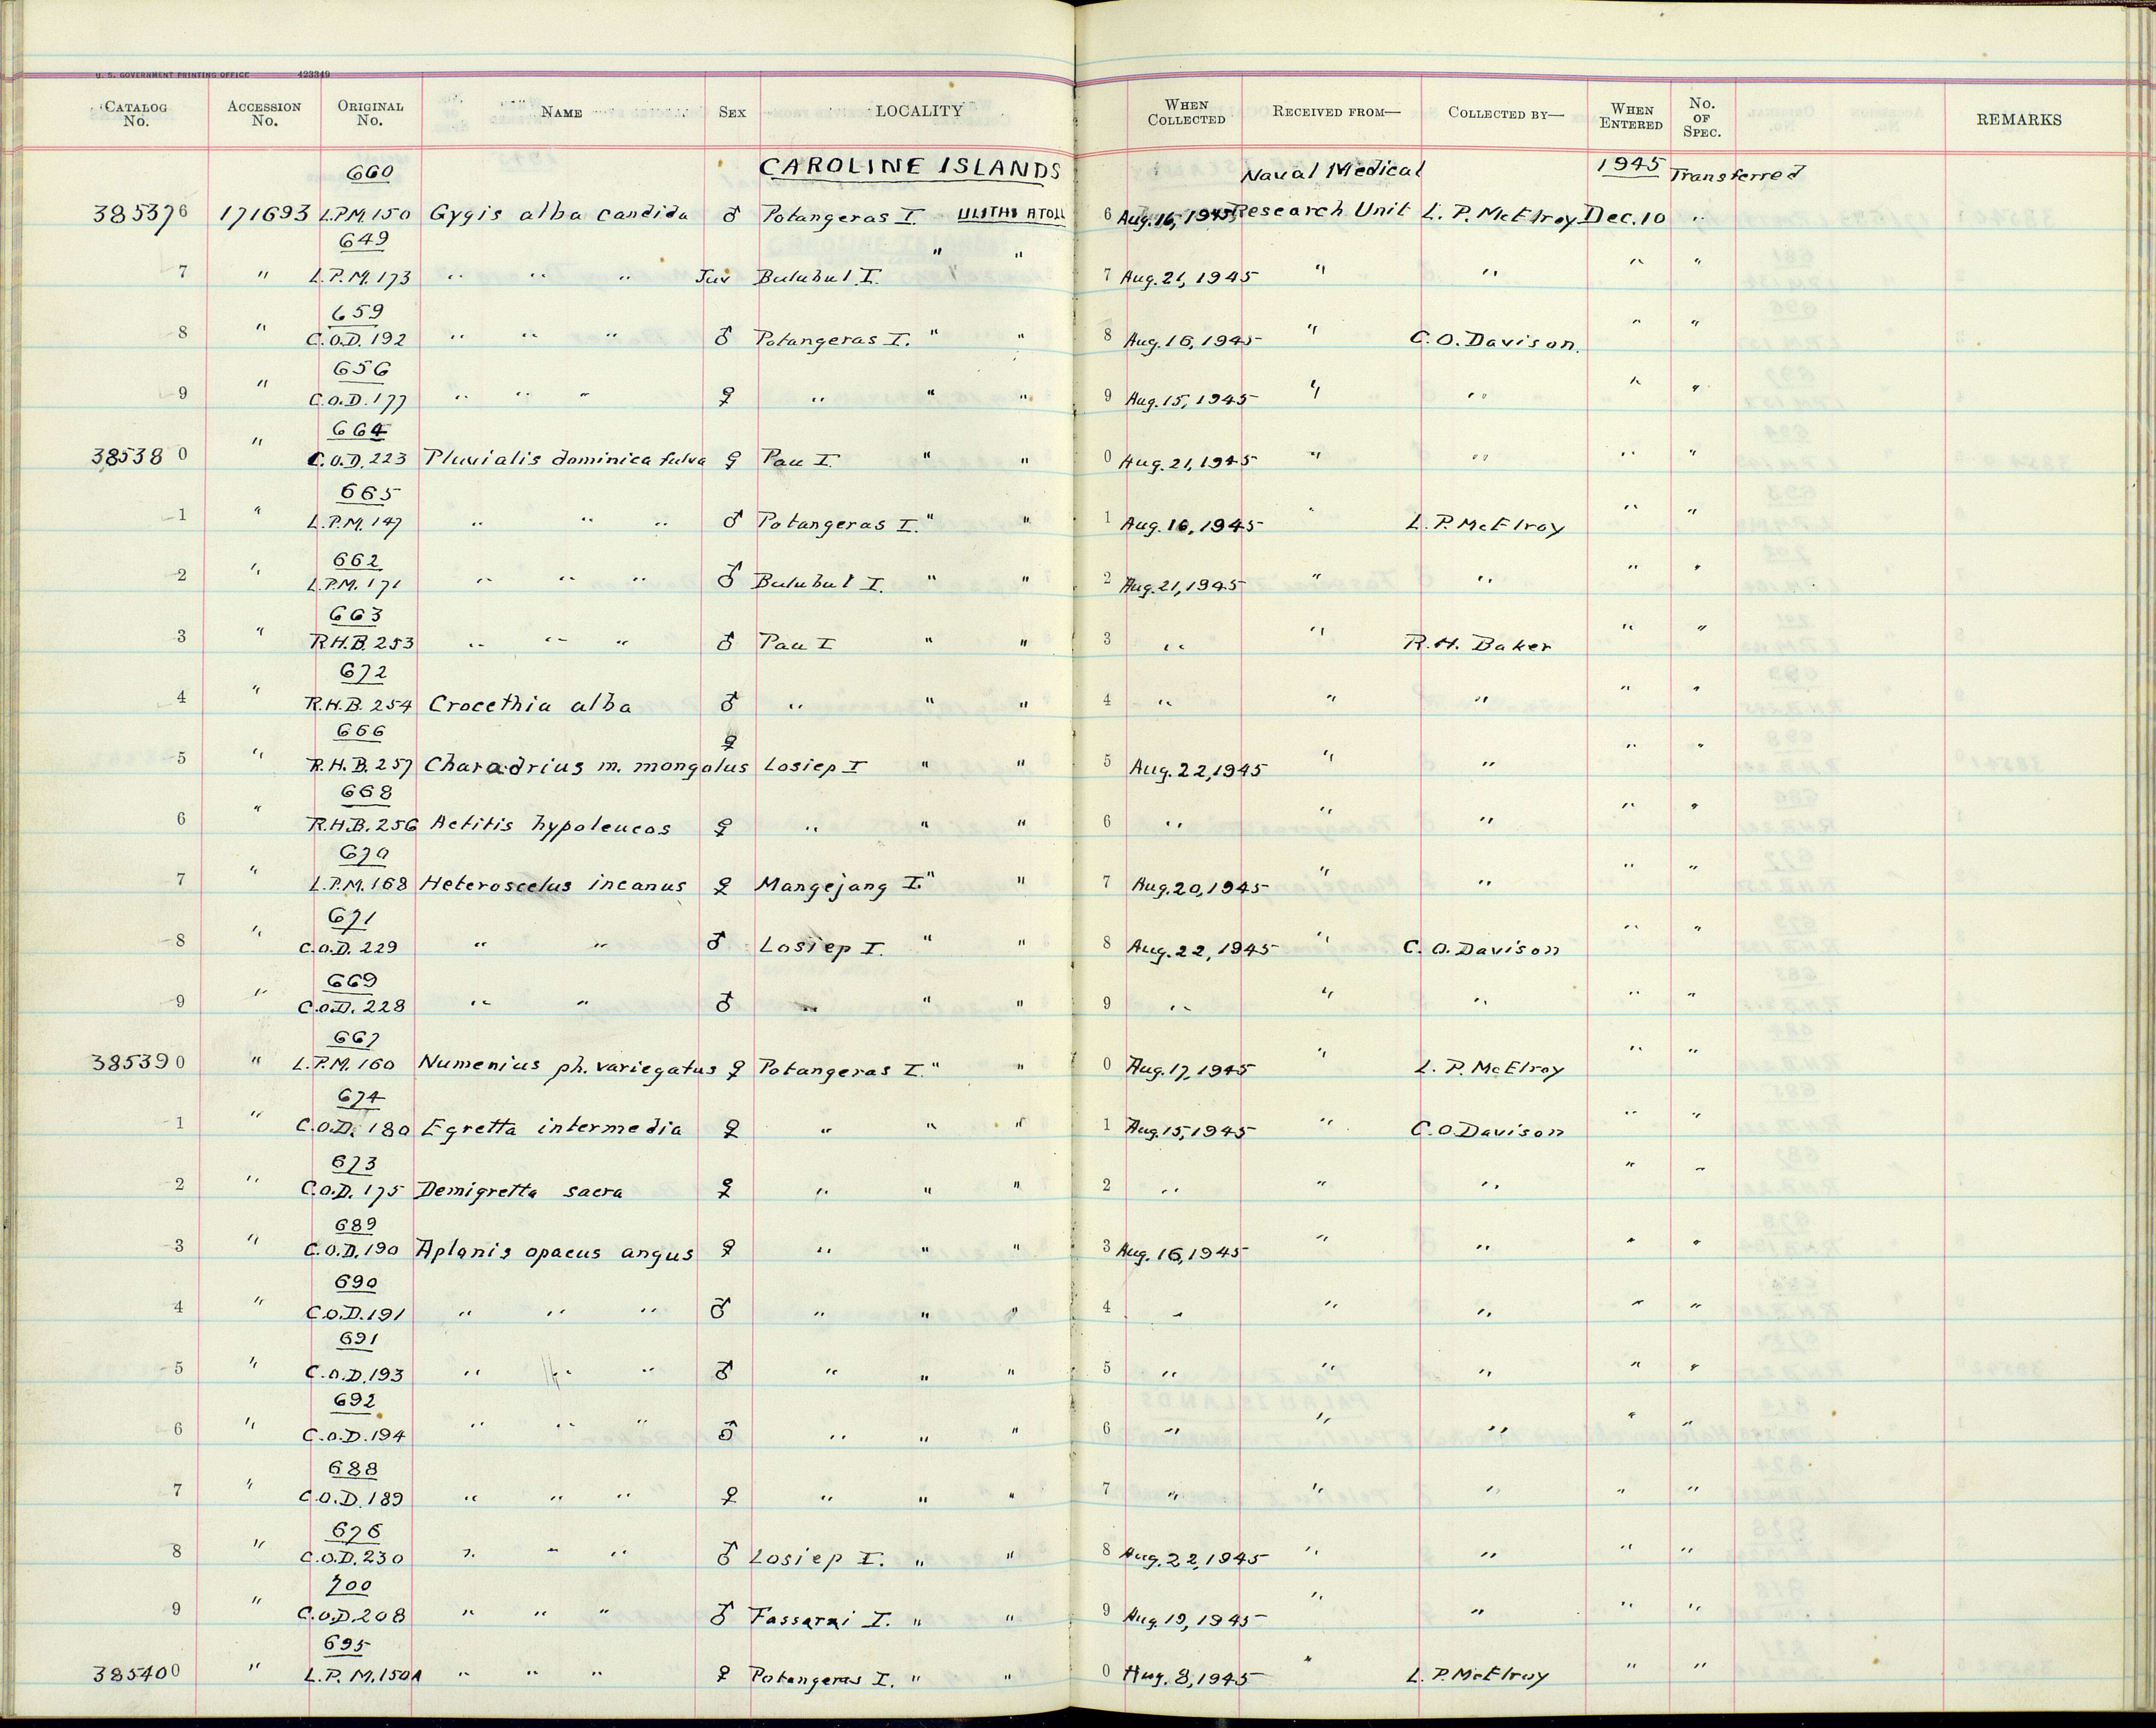 U. S. GOVERNMENT PRINTING OFFICE 423349
CATALOG No. ACCESSION No. ORIGINAL No. NAME SEX LOCALITY WHEN COLLECTED RECEIVED FROM— COLLECTED BY— WHEN ENTERED No. OF SPEC. REMARKS
660 CAROLINE ISLANDS Naval Medical 1945 Transferred
385376 171693 L.P.M. 150 Gygis alba candida ♂ Potangeras I. ULITHI ATOLL 6 Aug. 16, 1945 Research Unit L. P. McElroy Dec. 10 "
649
7 " L.P.M. 173 " " " Juv Bulubul I. " " 7 Aug. 21, 1945 " " " "
659
8 " C.O.D. 192 " " " ♂ Potangeras I. " " 8 Aug. 16, 1945 " C. O. Davison. " "
656
9 " C.O.D. 177 " " " ♀ " " " 9 Aug. 15, 1945 " " " "
664
385380 " C.O.D. 223 Pluvialis dominica fulva ♀ Pau I. " " 0 Aug. 21, 1945 " " " "
665
1 " L.P.M. 147 " " " ♂ Potangeras I. " " 1 Aug. 16, 1945 " L. P. McElroy " "
662
2 " L.P.M. 171 " " " ♂ Bulubul I. " " 2 Aug. 21, 1945 " " " "
663
3 " R.H.B. 253 " " " ♂ Pau I " " 3 " " R. H. Baker " "
672
4 " R.H.B. 254 Crocethia alba ♂ " " " 4 " " " " "
666
5 " R.H.B. 257 Charadrius m. mongolus ♀ Losiep I " " 5 Aug. 22, 1945 " " " "
668
6 " R.H.B. 256 Actitis hypoleucos ♀ " " " 6 " " " " "
670
7 " L.P.M. 168 Heteroscelus incanus ♀ Mangejang I. " " 7 Aug. 20, 1945 " " " "
671
8 " C.O.D. 229 " " ♂ Losiep I. " " 8 Aug. 22, 1945 " C. O. Davison " "
669
9 " C.O.D. 228 " " ♂ " " " 9 " " " " "
667
385390 " L.P.M. 160 Numenius ph. variegatus ♀ Potangeras I. " " 0 Aug. 17, 1945 " L. P. McElroy " "
674
1 " C.O.D. 180 Egretta intermedia ♀ " " " 1 Aug. 15, 1945 " C. O. Davison " "
673
2 " C.O.D. 175 Demigretta sacra ♀ " " " 2 " " " " "
689
3 " C.O.D. 190 Aplonis opacus angus ♀ " " " 3 Aug. 16, 1945 " " " "
690
4 " C.O.D. 191 " " " ♂ " " " 4 " " " " "
691
5 " C.O.D. 193 " " " ♂ " " " 5 " " " " "
692
6 " C.O.D. 194 " " " ♂ " " " 6 " " " " "
688
7 " C.O.D. 189 " " " ♀ " " " 7 " " " " "
676
8 " C.O.D. 230 " " " ♂ Losiep I. " " 8 Aug. 22, 1945 " " " "
700
9 " C.O.D. 208 " " " ♂ Fassarai I. " " 9 Aug. 19, 1945 " " " "
695
385400 " L. P. M. 150A " " " ♀ Potangeras I. " " 0 Aug. 8, 1945 " L. P. McElroy " "